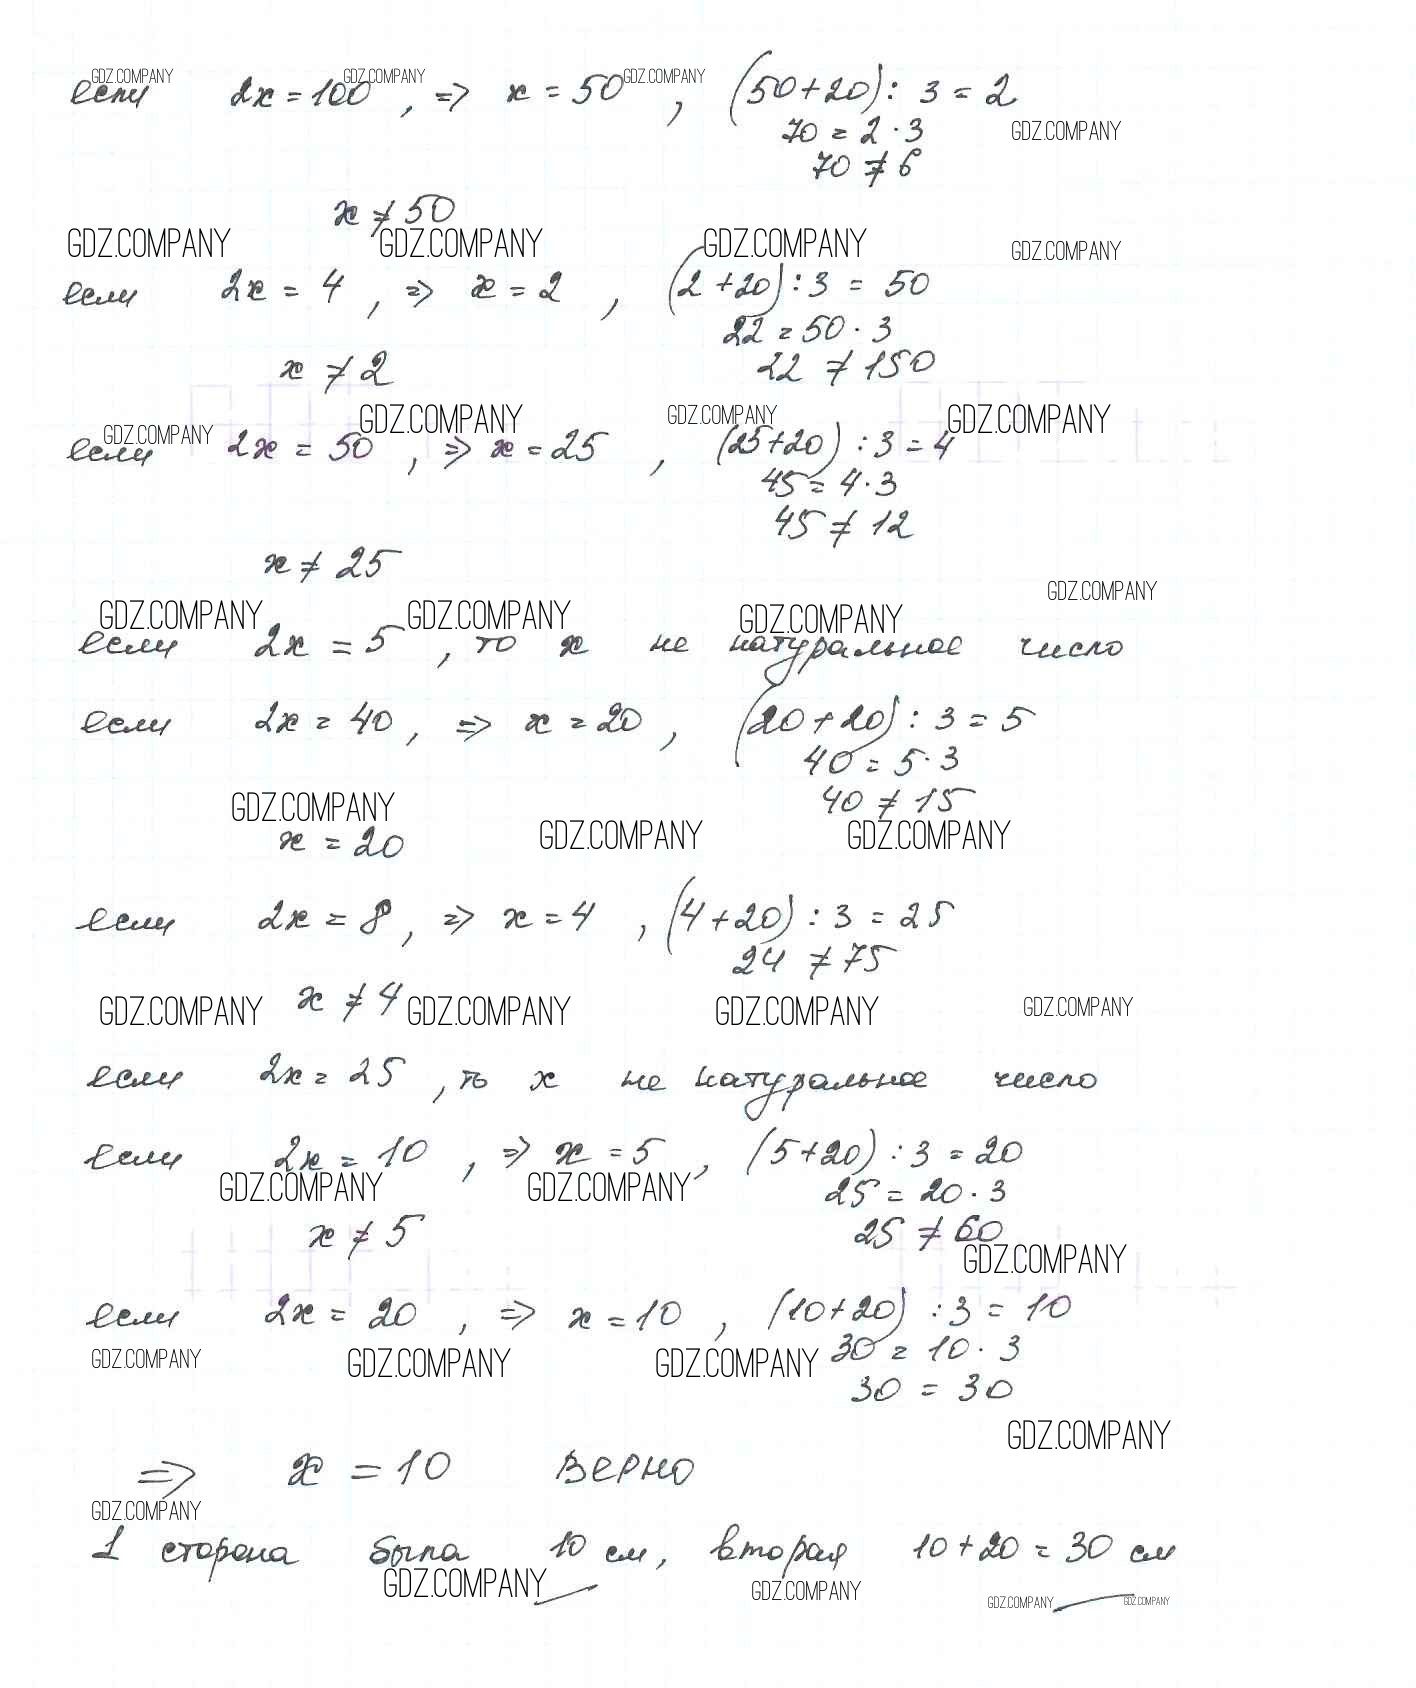 GDZ.COMPANY GDZ.COMPANY GDZ.COMPANY
если 2x = 100 , => x = 50 , (50+20) : 3 = 2
70 = 2 · 3 GDZ.COMPANY
70 ≠ 6
x ≠ 50
GDZ.COMPANY GDZ.COMPANY GDZ.COMPANY GDZ.COMPANY
если 2x = 4 , => x = 2 , (2+20) : 3 = 50
22 = 50 · 3
x ≠ 2 22 ≠ 150
GDZ.COMPANY GDZ.COMPANY GDZ.COMPANY GDZ.COMPANY
если 2x = 50 , => x = 25 , (25+20) : 3 = 4
45 = 4 · 3
45 ≠ 12
x ≠ 25
GDZ.COMPANY
GDZ.COMPANY GDZ.COMPANY GDZ.COMPANY
если 2x = 5 , то x не натуральное число
если 2x = 40 , => x = 20 , (20+20) : 3 = 5
40 = 5 · 3
40 ≠ 15
GDZ.COMPANY GDZ.COMPANY GDZ.COMPANY
x = 20
если 2x = 8 , => x = 4 , (4+20) : 3 = 25
24 ≠ 75
x ≠ 4
GDZ.COMPANY GDZ.COMPANY GDZ.COMPANY GDZ.COMPANY
если 2x = 25 , то x не натуральное число
если 2x = 10 , => x = 5 , (5+20) : 3 = 20
GDZ.COMPANY GDZ.COMPANY 25 = 20 · 3
x ≠ 5 25 ≠ 60
GDZ.COMPANY
если 2x = 20 , => x = 10 , (10+20) : 3 = 10
GDZ.COMPANY GDZ.COMPANY GDZ.COMPANY 30 = 10 · 3
30 = 30
GDZ.COMPANY
=> x = 10 верно
GDZ.COMPANY
1 сторона была 10 см, вторая 10+20 = 30 см
GDZ.COMPANY GDZ.COMPANY GDZ.COMPANY GDZ.COMPANY